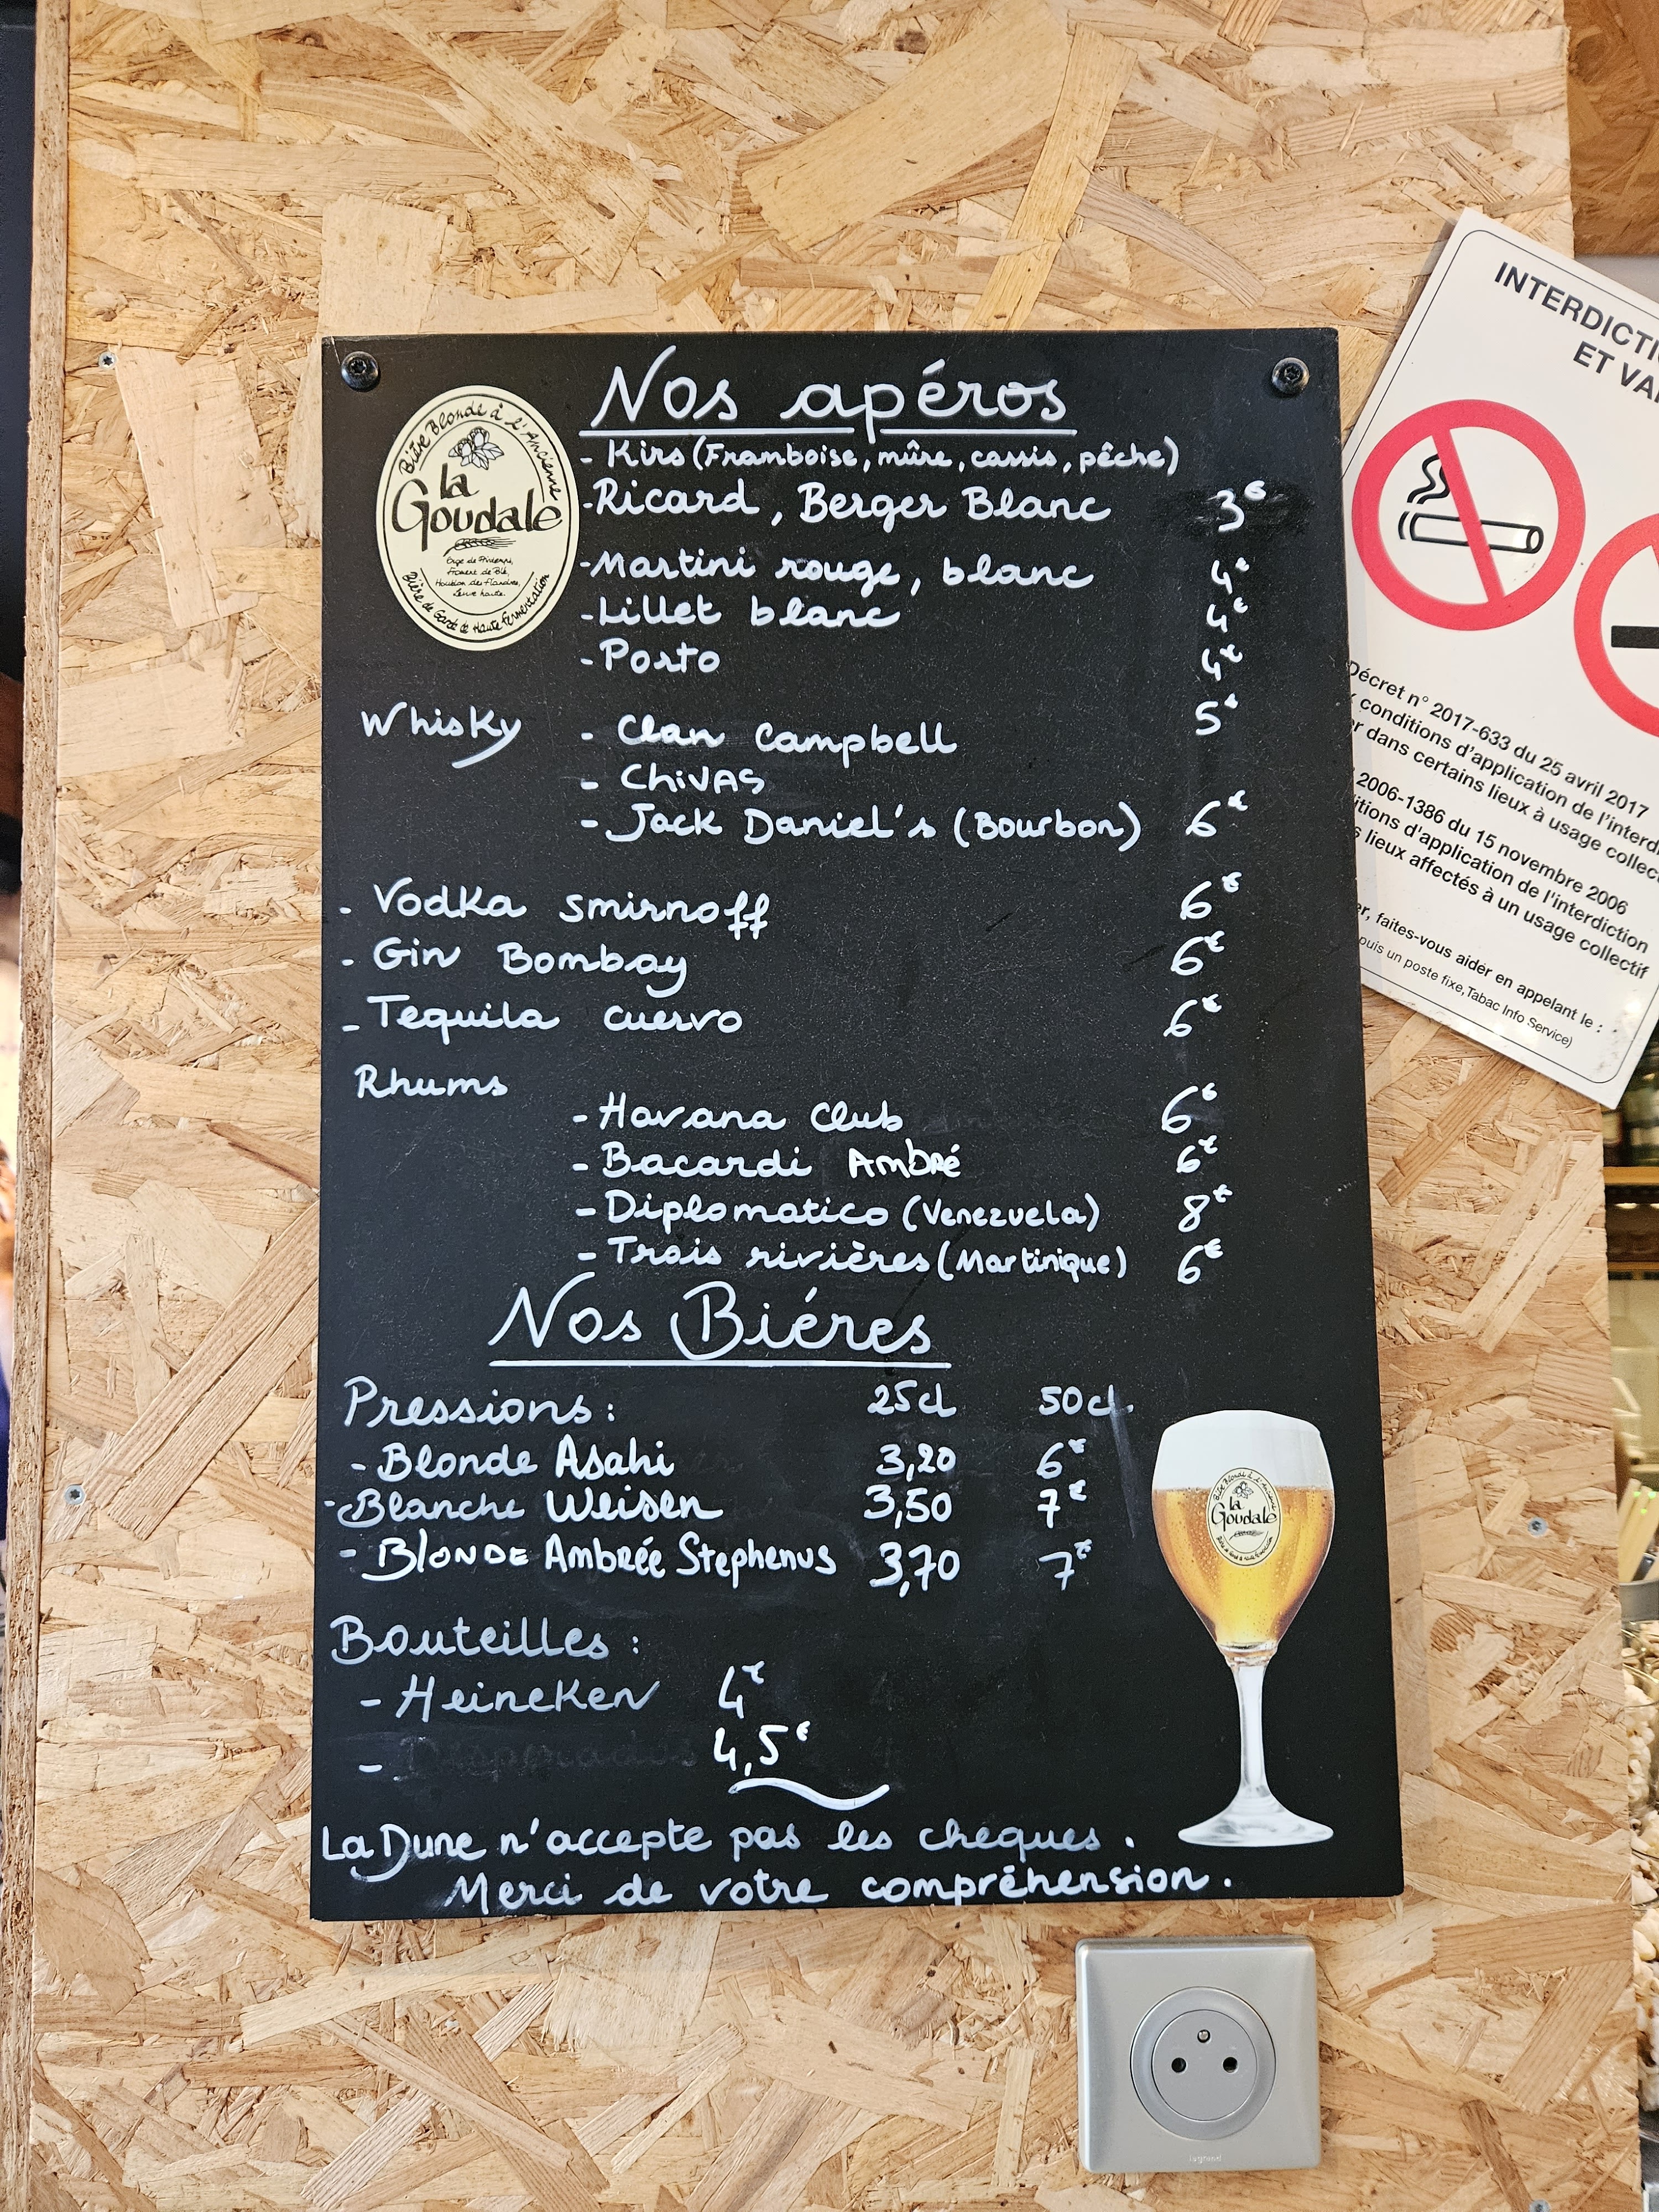 Nos apéros
- Kirs (Framboise, mûre, cassis, pêche)
- Ricard, Berger Blanc 3€
- Martini rouge, blanc 4€
- Lillet blanc 4€
- Porto 4€
Whisky - Clan Campbell 5€
- CHIVAS
- Jack Daniel's (Bourbon) 6€
- Vodka smirnoff 6€
- Gin Bombay 6€
- Tequila cuervo 6€
Rhums
- Havana Club 6€
- Bacardi Ambré 6€
- Diplomatico (Venezuela) 8€
- Trois rivières (Martinique) 6€
Nos Biéres
Pressions : 25cl 50cl.
- Blonde Asahi 3,20 6€
- Blanche Weisen 3,50 7€
- BLONDE Ambrée Stephenus 3,70 7€
Bouteilles :
- Heineken 4€
- Desperados 4,5€
La Dune n'accepte pas les cheques.
Merci de votre compréhension.
Bière Blonde à l'Ancienne
la
Goudale
Orge de Printemps,
Froment de Blé,
Houblon des Flandres,
Levure haute.
Bière de Garde de Haute Fermentation
la
Goudale
INTERDICTIO
ET VA
Décret n° 2017-633 du 25 avril 2017
conditions d'application de l'interdi
er dans certains lieux à usage collec
2006-1386 du 15 novembre 2006
itions d'application de l'interdiction
s lieux affectés à un usage collectif
er, faites-vous aider en appelant le :
puis un poste fixe, Tabac Info Service)
legrand